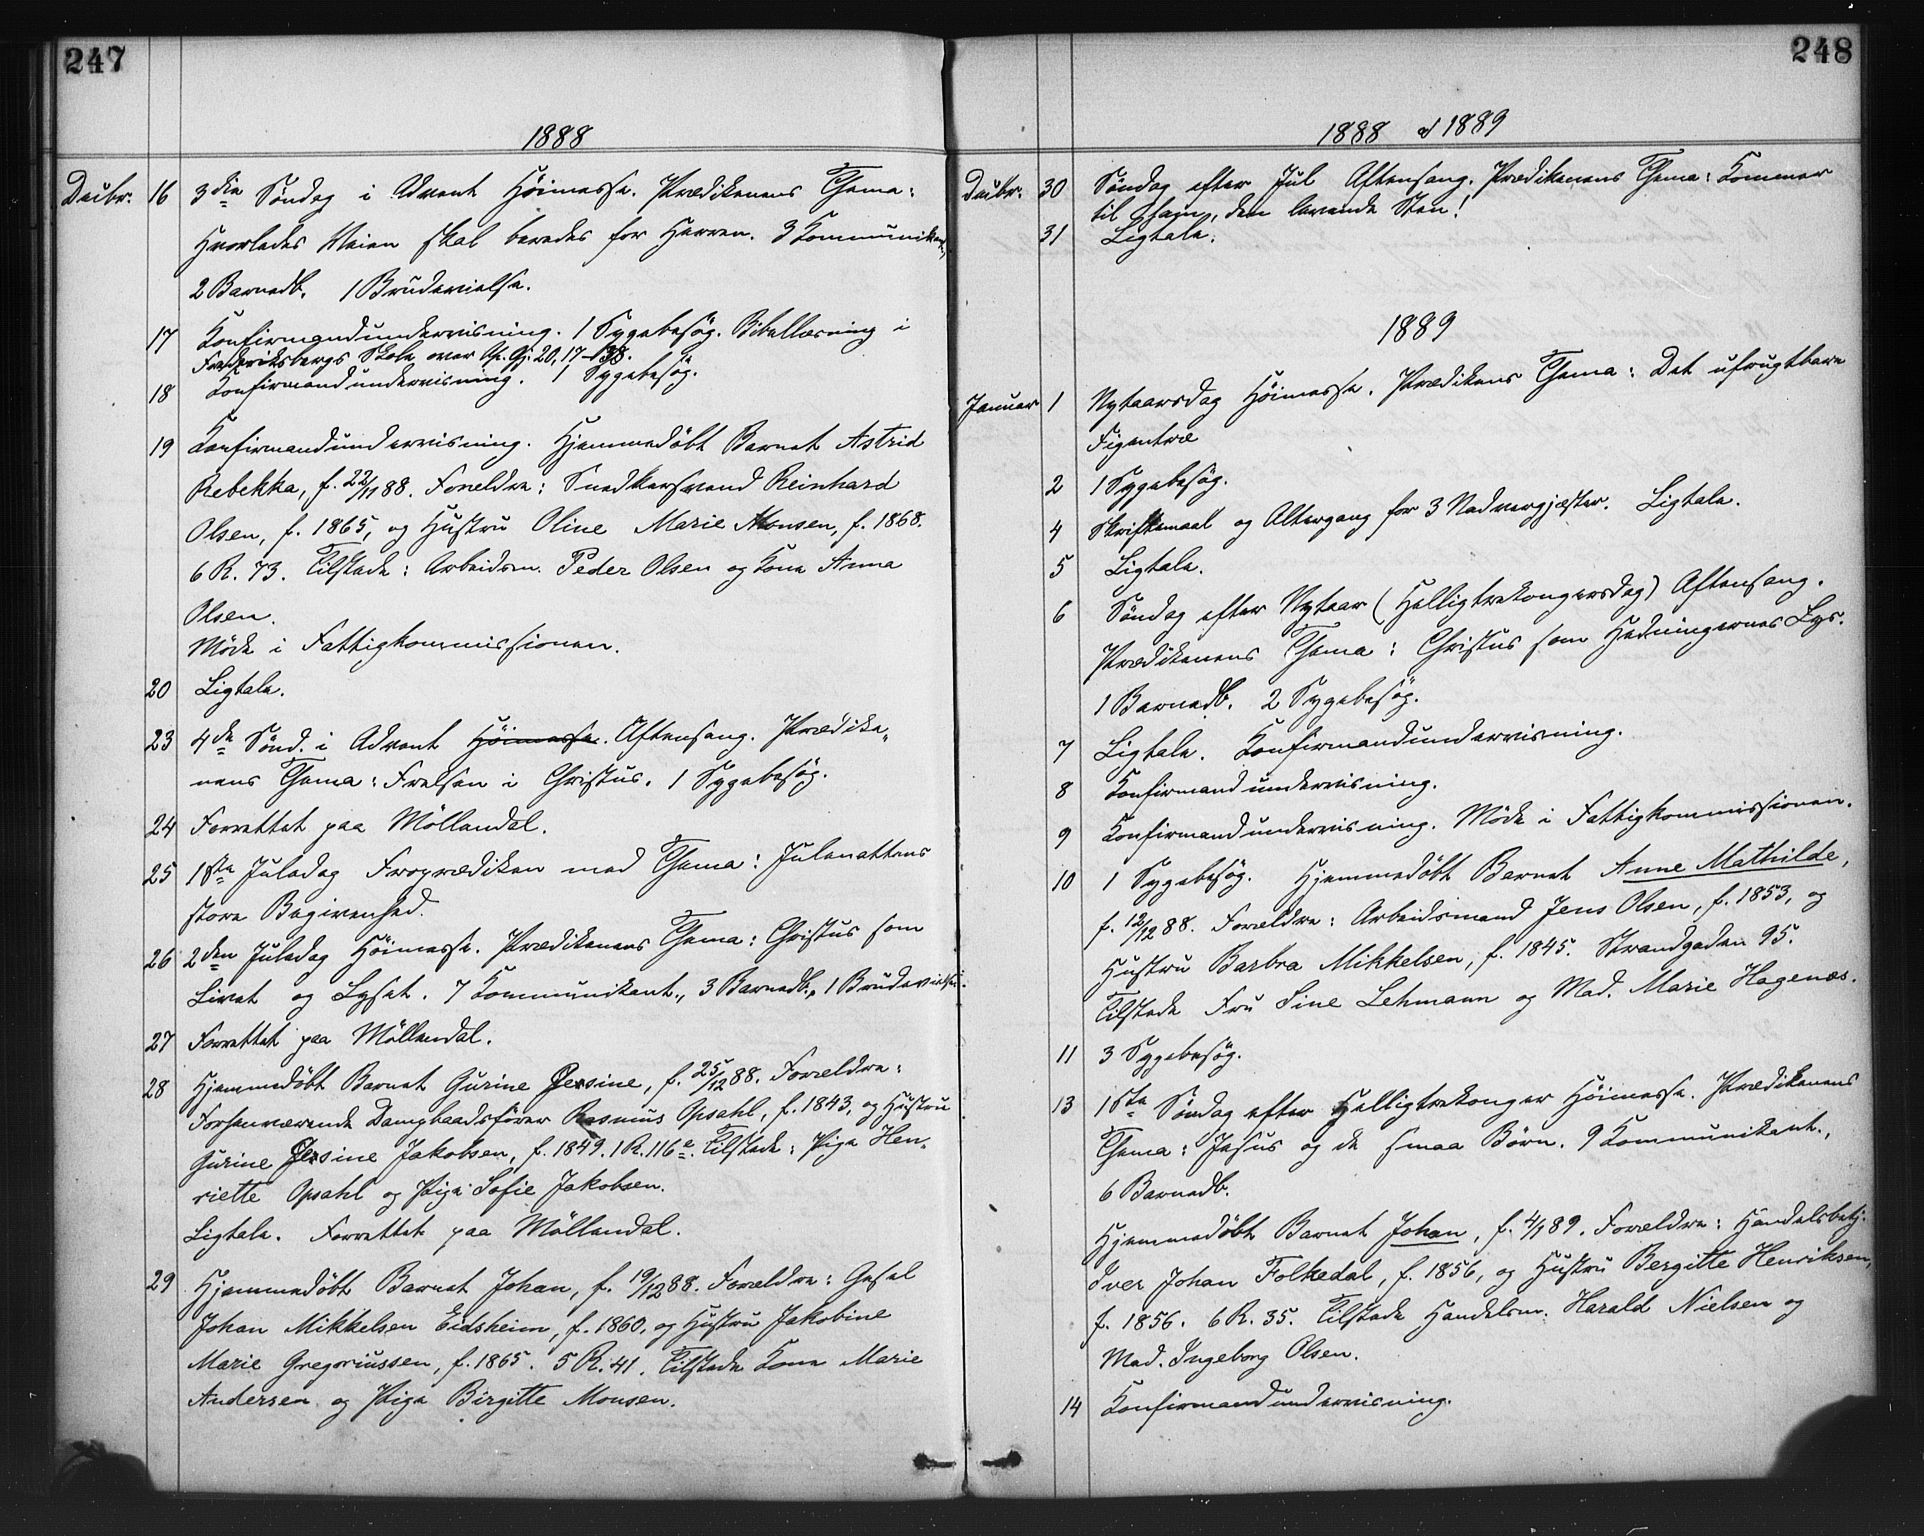 247
1888
Decbr. 16 3die Søndag i Advent Høimesse. Prædikenens Thema:
Hvorledes Veien skal beredes for Herren. 3 Kommunikant.,
2 Barnedb. 1 Brudevielse.
17 Konfirmandundervisning. 1 Sygebesøg. Bibellæsning i
Frederiksbergs Skole over Ap. Gj. 20, 17-38.
18 Konfirmandundervisning. 1 Sygebesøg.
19 Konfirmandundervisning. Hjemmedøbt Barnet Astrid
Rebekka, f. 22/11 88. Foreldre: Snedkersvend Reinhard
Olsen, f. 1865, og Hustru Oline Marie Monsen, f. 1868.
6 R. 73. Tilstede: Arbeidsm. Peder Olsen og Kone Anna
Olsen.
Möde i Fattigkommissionen.
20 Ligtale.
23 4de Sønd. i Advent Høimesse. Aftensang. Prædike„
nens Thema: Frelsen i Christus. 1 Sygebesøg.
24 Forrettet paa Möllendal.
25 1ste Juledag Froprædiken med Thema: Julenattens
store Begivenhed.
26 2den Juledag Høimesse. Prædikenens Thema: Christus som
Livet og Lyset. 7 Kommunikant., 3 Barnedb., 1 Brudevielse.
27 Forrettet paa Möllendal.
28 Hjemmedøbt Barnet Gurine Gersine, f. 25/12 88. Forældre:
Forhenværende Dampbaadsfører Rasmus Opsahl, f. 1843, og Hustru
Gurine Gersine Jakobsen, f. 1849. 1 R. 116e. Tilstede: Pige Hen„
riette Opsahl og Pige Sofie Jakobsen.
Ligtale. Forrettet paa Möllendal.
29 Hjemmedøbt Barnet Johan, f. 19/12 88. Forældre: Gesel
Johan Mikkelsen Eidsheim, f. 1860, og Hustru Jakobine
Marie Gregoriussen, f. 1865. 5 R. 41. Tilstede Kone Marie
Andersen og Pige Birgitte Monsen.
248
1888 og 1889
Decbr. 30 Søndag efter Jul Aftensang. Prædikenens Thema: Kommer
til ham, den levende Sten!
31 Ligtale.
1889
Januar 1 Nytaarsdag Høimesse. Prædikens Thema: Det ufrugtbare
Figentræ
2 1 Sygebesøg.
4 Skriftemaal og Altergang for 3 Nadvergjæster. Ligtale.
5 Ligtale.
6 Søndag efter Nytaar (Helligtrekongersdag) Aftensang.
Prædikenens Thema: Christus som Hedningernes Lys.
1 Barnedb. 2 Sygebesøg.
7 Ligtale. Konfirmandundervisning.
8 Konfirmandundervisning.
9 Konfirmandundervisning. Möde i Fattigkommissionen.
10 1 Sygebesøg. Hjemmedøbt Barnet Anne Mathilde,
f. 12/12 88. Forældre: Arbeidsmand Jens Olsen, f. 1853, og
Hustru Barbra Mikkelsen, f. 1845. Strandgaden 95.
Tilstede Fru Sine Lehmann og Mad. Marie Hagenæs.
11 3 Sygebesøg.
13 1ste Søndag efter Helligtrekonger Høimesse. Prædikenens
Thema: Jesus og de smaa Børn. 9 Kommunikant.,
6 Barnedb.
Hjemmedøbt Barnet Johan, f. 4/1 89. Forældre: Handelsbetj.
Iver Johan Folkedal, f. 1856, og Hustru Bergitte Henriksen,
f. 1856. 6 R. 35. Tilstede Handelsm. Harald Nielsen og
Mad. Ingeborg Olsen.
14 Konfirmandundervisning.